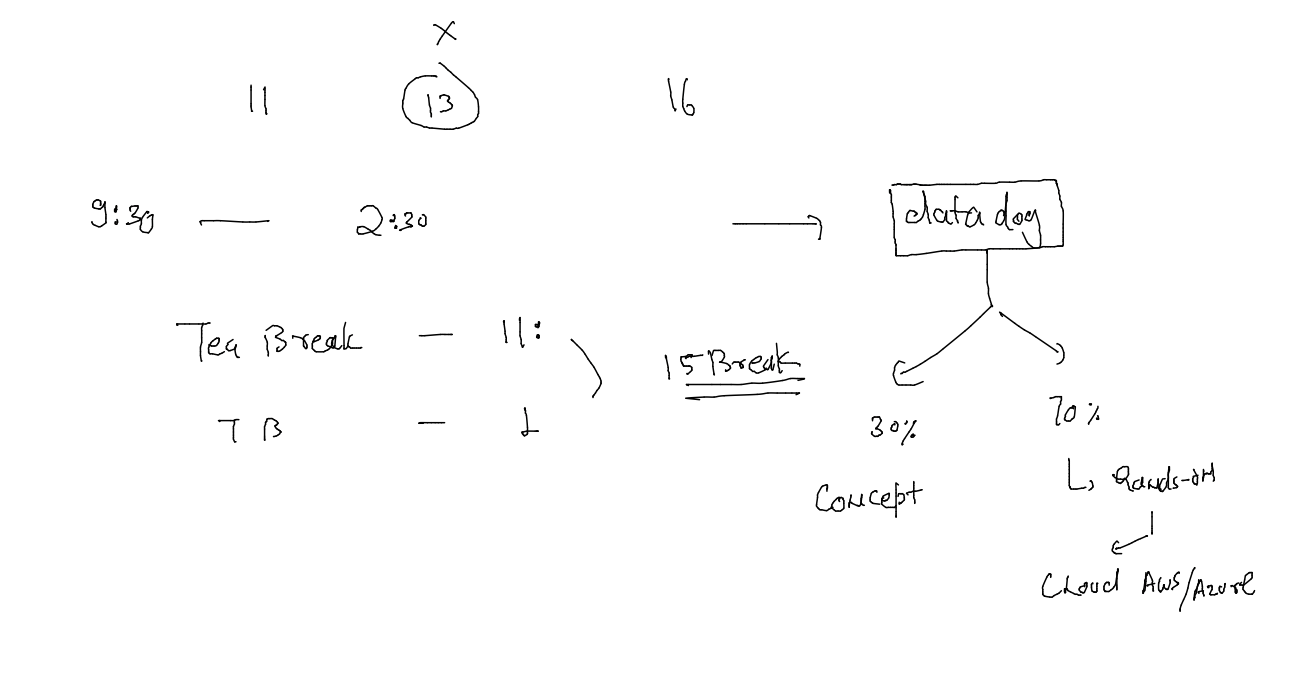 X
11 13 16
9:30 — 2:30 → data dog
Tea Break — 11:
15 Break
T B — 1
30% 70%
Concept
↳ Hands-on
Cloud AWS/Azure